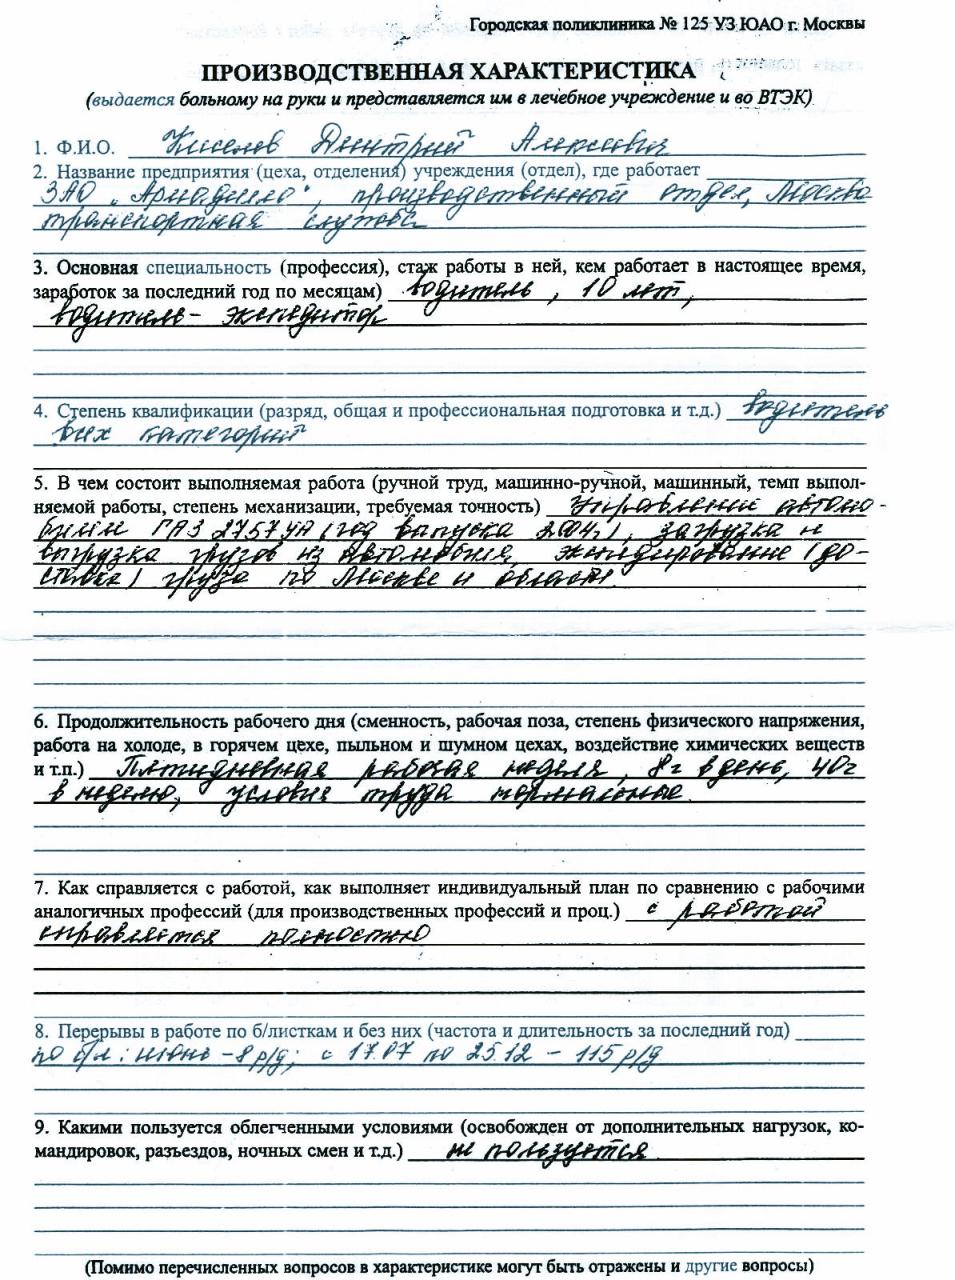 Городская поликлиника № 125 УЗ ЮАО г. Москвы
ПРОИЗВОДСТВЕННАЯ ХАРАКТЕРИСТИКА
(выдается больному на руки и представляется им в лечебное учреждение и во ВТЭК)
1. Ф.И.О. Киселев Дмитрий Алексеевич
2. Название предприятия (цеха, отделения) учреждения (отдел), где работает
ЗАО "Армадилло", производственный отдел, Москва
транспортная служба
3. Основная специальность (профессия), стаж работы в ней, кем работает в настоящее время,
заработок за последний год по месяцам) водитель, 10 лет,
водитель-экспедитор
4. Степень квалификации (разряд, общая и профессиональная подготовка и т.д.) водитель
всех категорий
5. В чем состоит выполняемая работа (ручной труд, машинно-ручной, машинный, темп выпол-
няемой работы, степень механизации, требуемая точность) Управление автомо-
билем ГАЗ 2757УА (год выпуска 2004г.), загрузка и
выгрузка грузов из автомобиля, экспедирование (до-
ставка) груза по Москве и области.
6. Продолжительность рабочего дня (сменность, рабочая поза, степень физического напряжения,
работа на холоде, в горячем цехе, пыльном и шумном цехах, воздействие химических веществ
и т.п.) Пятидневная рабочая неделя, 8ч в день, 40ч
в неделю, условия труда нормальные.
7. Как справляется с работой, как выполняет индивидуальный план по сравнению с рабочими
аналогичных профессий (для производственных профессий и проц.) с работой
справляется полностью
8. Перерывы в работе по б/листкам и без них (частота и длительность за последний год)
по б/л: июнь - 8 р/д; с 17.07 по 25.12 - 115 р/д
9. Какими пользуется облегченными условиями (освобожден от дополнительных нагрузок, ко-
мандировок, разъездов, ночных смен и т.д.) не пользуется.
(Помимо перечисленных вопросов в характеристике могут быть отражены и другие вопросы)